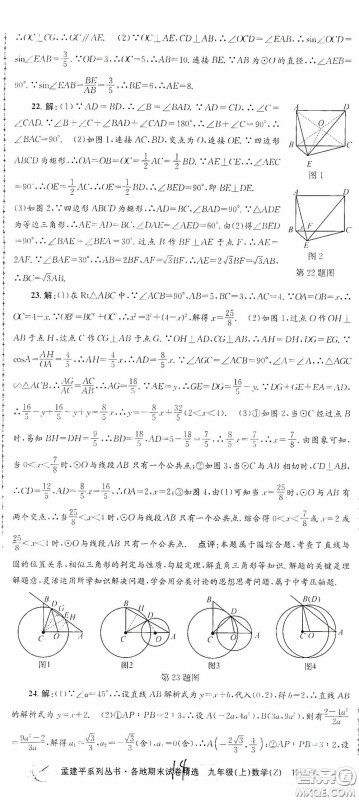 ∴∠OCB=∠CGB,∴OC=CG,∴GC∥AE. (2)∵OC⊥AE,CD⊥AB,∴∠OCD=∠EAB,∴sin∠OCD=
sin∠EAB=3/5.∵OD=3,∴OC=5,∴AB=10.连接BE.∵AB为⊙O的直径,∴∠AEB=
90°.∵sin∠EAB=BE/AB=3/5,∴BE=6,∴AE=8.
22.解:(1)∵AD=BD,∴∠B=∠BAD.∵AD=CD,∴∠C=
∠CAD.∵∠B+∠C+∠BAD+∠CAD=180°,∴∠B+∠C=90°,∴
∠BAC=90°. (2)如图1,连接AC,BD,交点为O,连接OE.∵四边形
ABCD为矩形,∴OA=OB=OC=1/2AC=1/2BD.∵AE⊥CE,∴∠AEC
=90°,∴OE=1/2AC,∴OE=1/2BD,∴∠BED=90°,即BE⊥DE.
(3)如图2,∵四边形ABCD为矩形,∴AD=BC,∠BAD=90°.∵△ADE
为等边三角形,∴AE=AD=BC,∠DAE=∠AED=60°.由(2)得∠BED
=90°,∴∠BAE=∠BEA=30°.过点B作BF⊥AE于点F,∴AE=
2AF.∵∠BAE=30°,∴AB=2BF,AF=√3BF,∴AE=2√3BF=√3AB,
∴BC=√3AB.
图1
图2
第22题图
23.解:(1)在Rt△ABC中,∵∠ACB=90°,AB=5,BC=3,∴AC=4.∵OA=OB=x,∴
OC=4-x.∵OB²=BC²+OC²,∴x²=3²+(4-x)²,解得x=25/8. (2)如图1,过点O作OH⊥
AB于点H,过点C作CG⊥AB于点G.∵OH⊥AD,CG⊥AB,∴AH=DH,DG=EG.∵
cosA=AH/OA=4/5,∴AH=4/5x,∴AD=8/5x.∵∠AGC=∠ACB=90°,∠A=∠A,∴△AGC
∽△ACB,∴AG/AC=AC/AB,∴AG=16/5.∵AE=y,∴GE=DG=16/5-y.∵DG+GE+EA=AD,
∴16/5-y+16/5-y+y=8/5x,∴y=-8/5x+32/5(2<x<4). (3)①如图2,当⊙C经过点B
时,易知BH=DH=9/5,∴BD=18/5,∴AD=5-18/5=7/5,∴8/5x=7/5,∴x=7/8.由图象可知,
当0<x<7/8时,⊙O与线段AB只有一个公共点;②如图3,当⊙C与AB相切时,CD⊥AB,
∴CD=12/5,AD=16/5,∴OA=2,∴x=2;③如图4,由(1)可知当x=25/8时,⊙O与线段AB有
两个交点,∴当25/8<x<4时,⊙O与线段AB只有一个公共点.综合得0<x<7/8或x=2或
25/8<x<4时,⊙O与线段AB只有一个公共点. 点评:本题属于圆综合题,考查了直线与
圆的位置关系,相似三角形的判定与性质,勾股定理,解直角三角形等知识.解题的关键是理
解题意,灵活运用所学知识解决问题,学会用分类讨论的思想思考问题,属于中考压轴题.
图1
图2
图3
图4
第23题图
24.解:(1)∵∠α=45°,∴设直线AB解析式为y=x+b,代入(0,2),得b=2,∴直线AB
的解析式为y=x+2. (2)∵AP:PB=2:3,∴设A(-2a,4a²),B(3a,9a²),则有2-4a²/2a
=9a²-2/3a,解得a₁=√3/3,a₂=-√3/3(舍),
孟建平系列丛书·各地期末试卷精选 九年级(上)数学(Z)
14